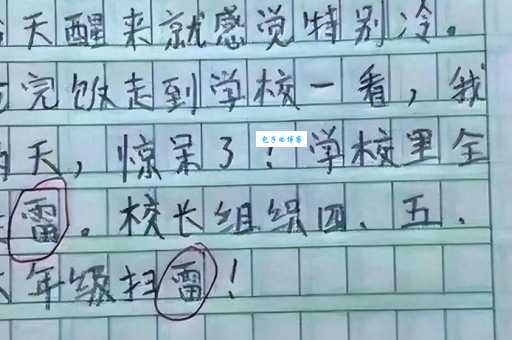 天醒来就感觉特别冷。
完饭走到学校一看，我
天，惊呆了！学校里全
雷。校长组织四、五、
年级扫雷！
包子的博客